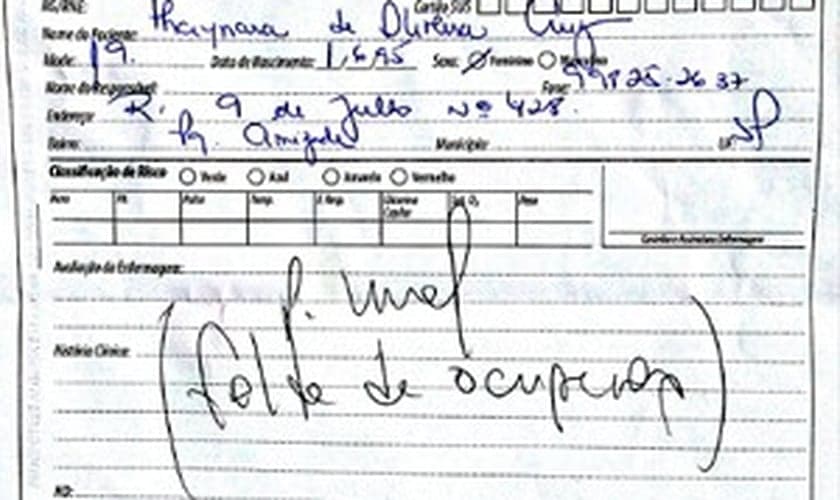 RG/RNE: Cartão SUS
Nome do Paciente: Thaynara de Oliveira Cruz
Idade: 19. Data de Nascimento: 1,6,95 Sexo: Feminino Masculino
Nome do Responsável: Fone: 99825-2637
Endereço: R. 9 de Julho Nº 428.
Bairro: Pq. Amizade Município: UF: SP
Classificação de Risco Verde Azul Amarela Vermelho
Peso PA Pulso Temp. F. Resp. Glicemia Capilar Sat. O₂ Dose
Carimbo e Assinatura Enfermagem
Avaliação da Enfermagem:
P. Viral
História Clínica:
(falta de ocupação)
HD: